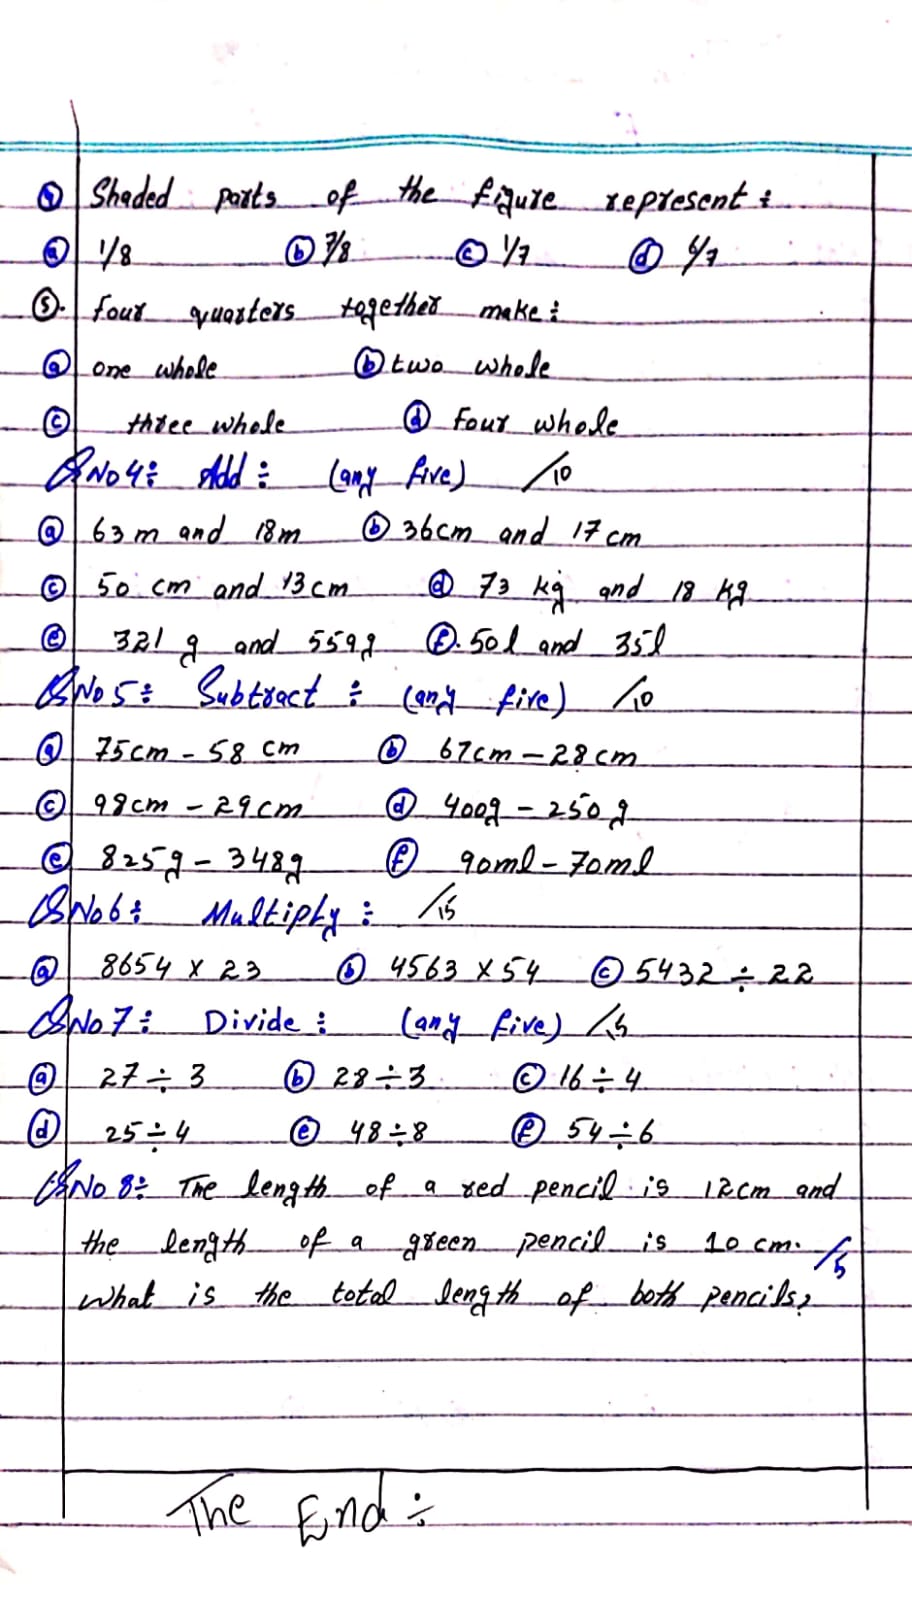 ④ Shaded parts of the figure represent :
ⓐ 1/8 ⓑ 7/8 ⓒ 1/7 ⓓ 6/7
⑤. four quarters together make :
ⓐ one whole ⓑ two whole
ⓒ three whole ⓓ Four whole
Q No 4 : Add : (any five) /10
ⓐ 63 m and 18m ⓑ 36cm and 17 cm
ⓒ 50 cm and 13 cm ⓓ 73 kg and 18 kg
ⓔ 321 g and 559g ⓕ. 50l and 35l
Q No 5 : Subtract : (any five) /10
ⓐ 75cm - 58 cm ⓑ 67cm - 28cm
ⓒ 98cm - 29cm ⓓ 400g - 250g
ⓔ 825g - 348g ⓕ 90ml - 70ml
Q No 6 : Multiply : /15
ⓐ 8654 x 23 ⓑ 4563 x 54 ⓒ 5432 ÷ 22
Q No 7 : Divide : (any five) /15
ⓐ 27 ÷ 3 ⓑ 28 ÷ 3 ⓒ 16 ÷ 4
ⓓ 25 ÷ 4 ⓔ 48 ÷ 8 ⓕ 54 ÷ 6
Q No 8 : The length of a red pencil is 12cm and
the length of a green pencil is 10 cm. /5
what is the total length of both pencils?
The End :